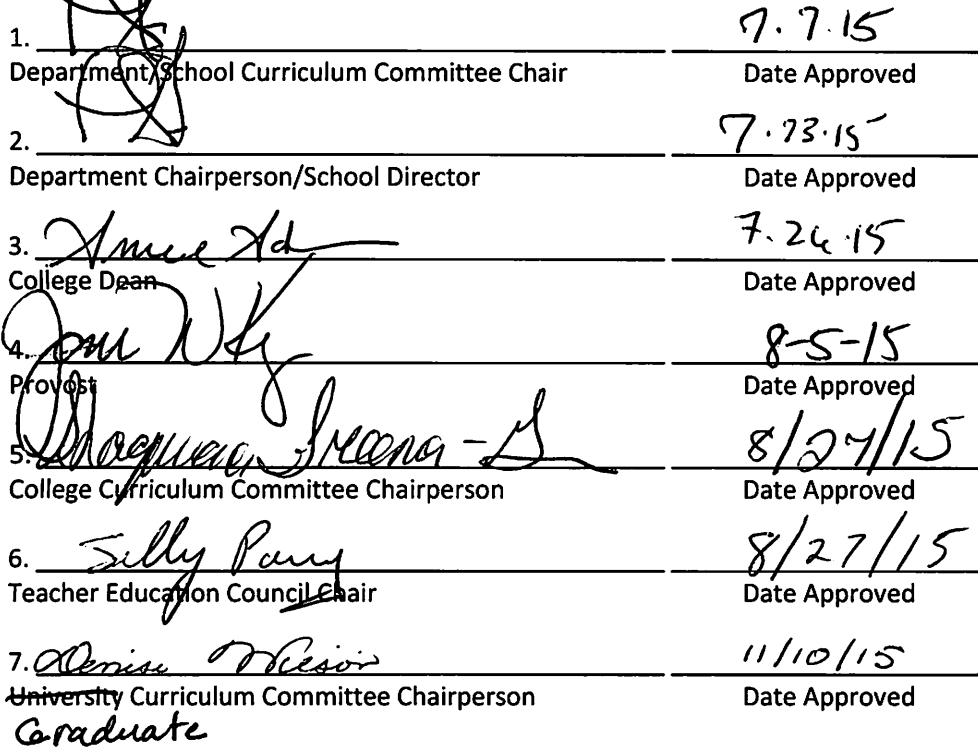 1. 7.7.15
Department/School Curriculum Committee Chair Date Approved
2. 7.23.15
Department Chairperson/School Director Date Approved
3. 7.24.15
College Dean Date Approved
4. 8-5-15
Provost Date Approved
5. 8/27/15
College Curriculum Committee Chairperson Date Approved
6. 8/27/15
Teacher Education Council Chair Date Approved
7. Denise Wilson 11/10/15
University Curriculum Committee Chairperson Date Approved
Graduate